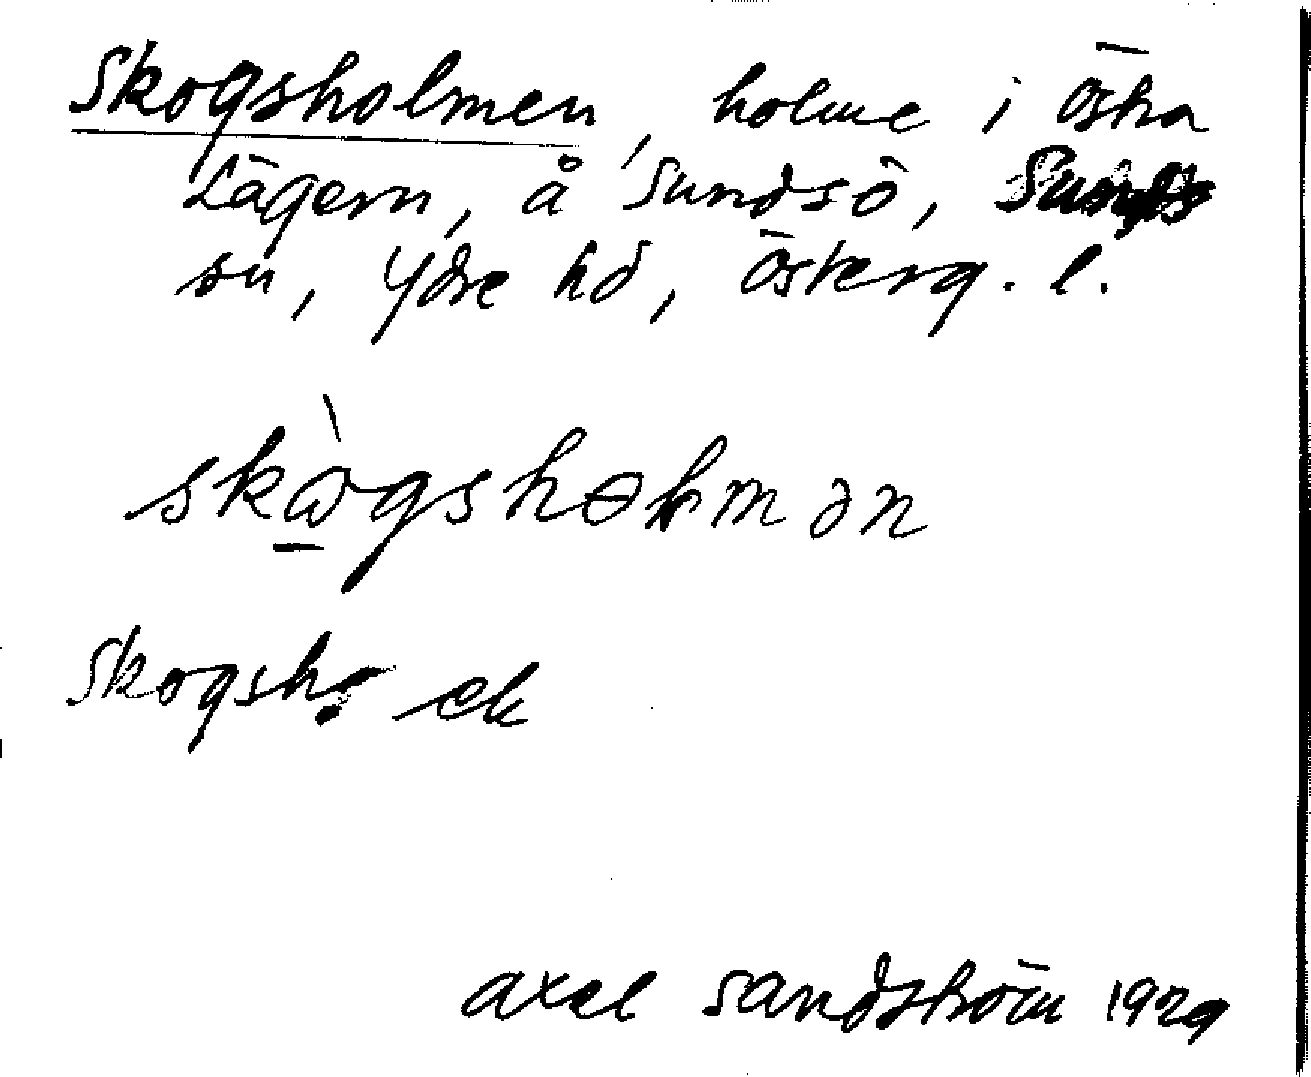 Skogsholmen, holme i Östra
Lägern, å Sundsö, Sunds
sn, Ydre hd, Österg. l.
skògshɵlmən
Skogsh. ek
Axel Sandström 1929